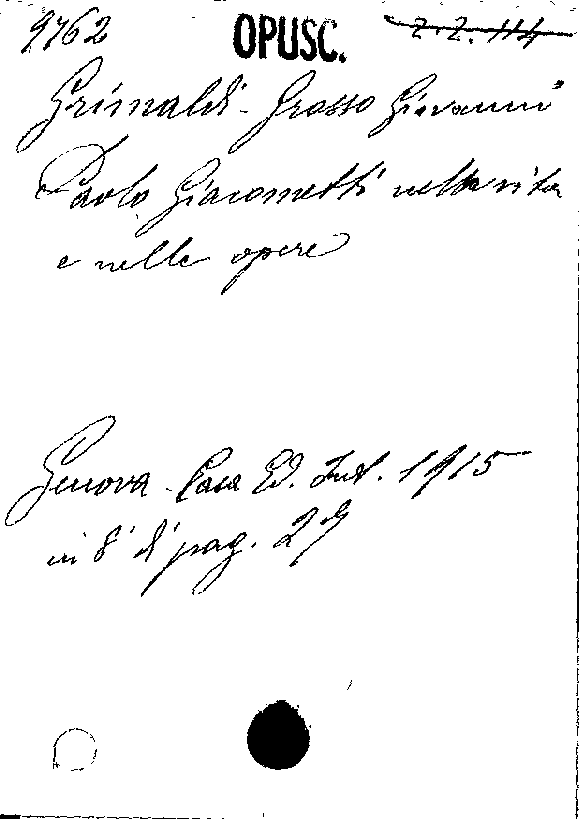 9762 OPUSC. Z.Z. 114
Grimaldi-Grosso Giovanni
Paolo Giacometti nella vita
e nelle opere
Genova - Casa Ed. Ind. 1915
in 8° di pag. 29